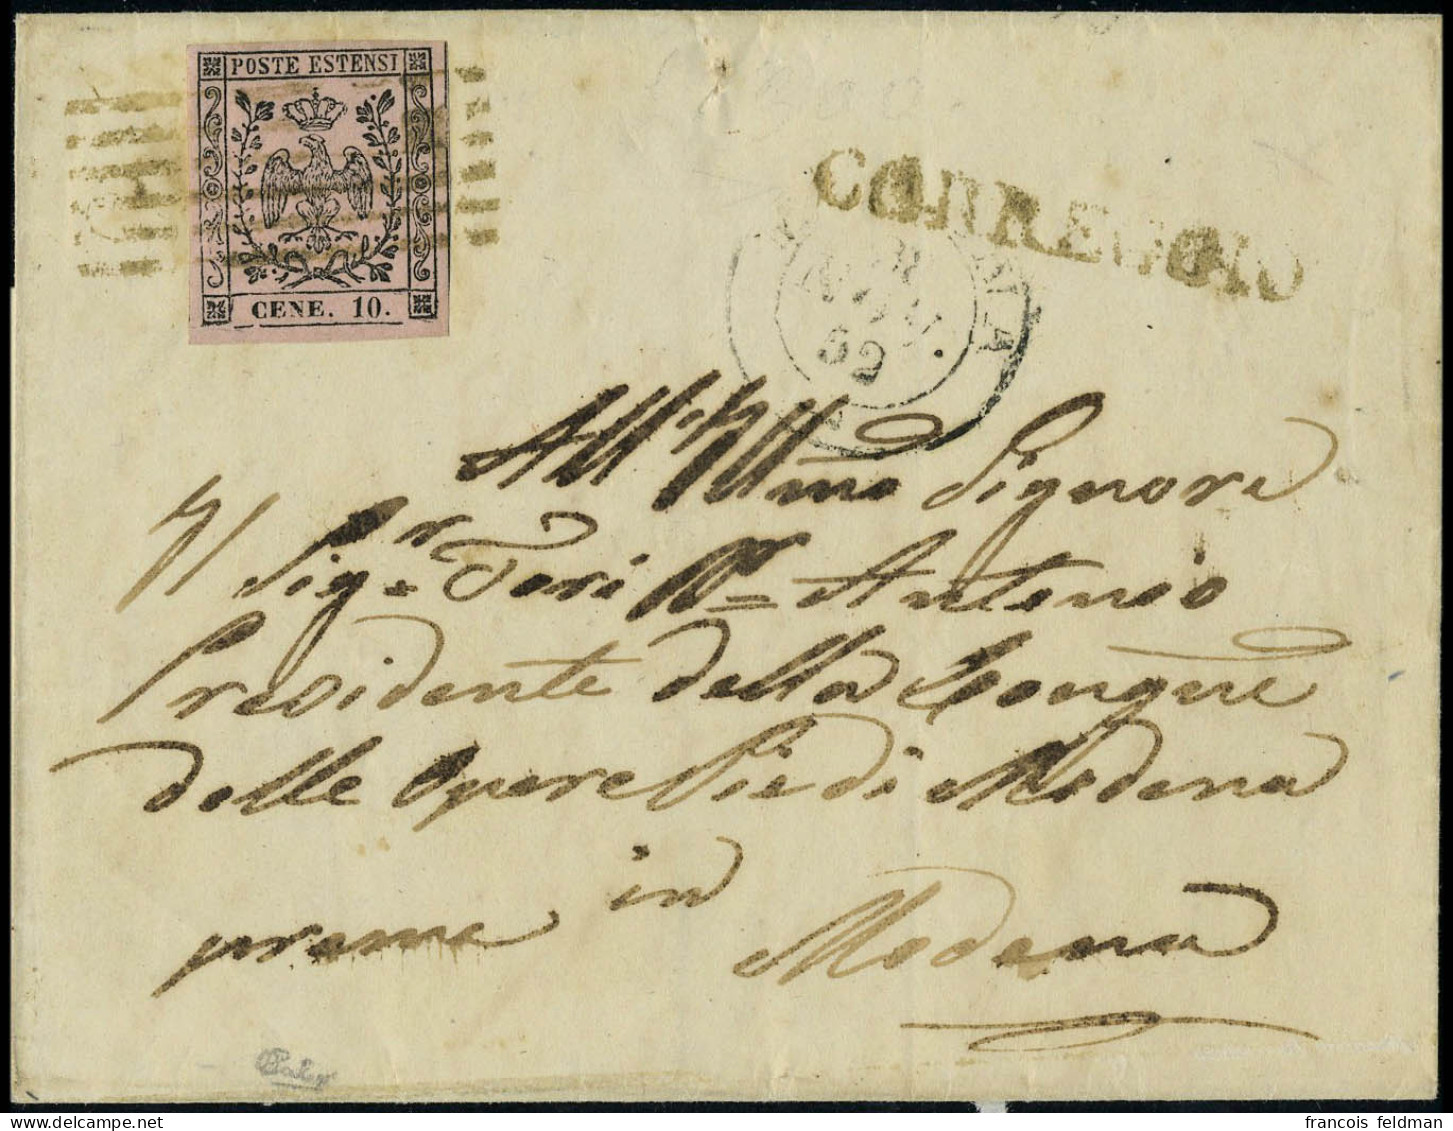 POSTE ESTENSI
CENE. 10.
CORREGGIO
52
All' Illmo Signore
Sigr Antonio
Presidente della Congne
delle Opere Pie di Modena
preme in Modena
francois feldman